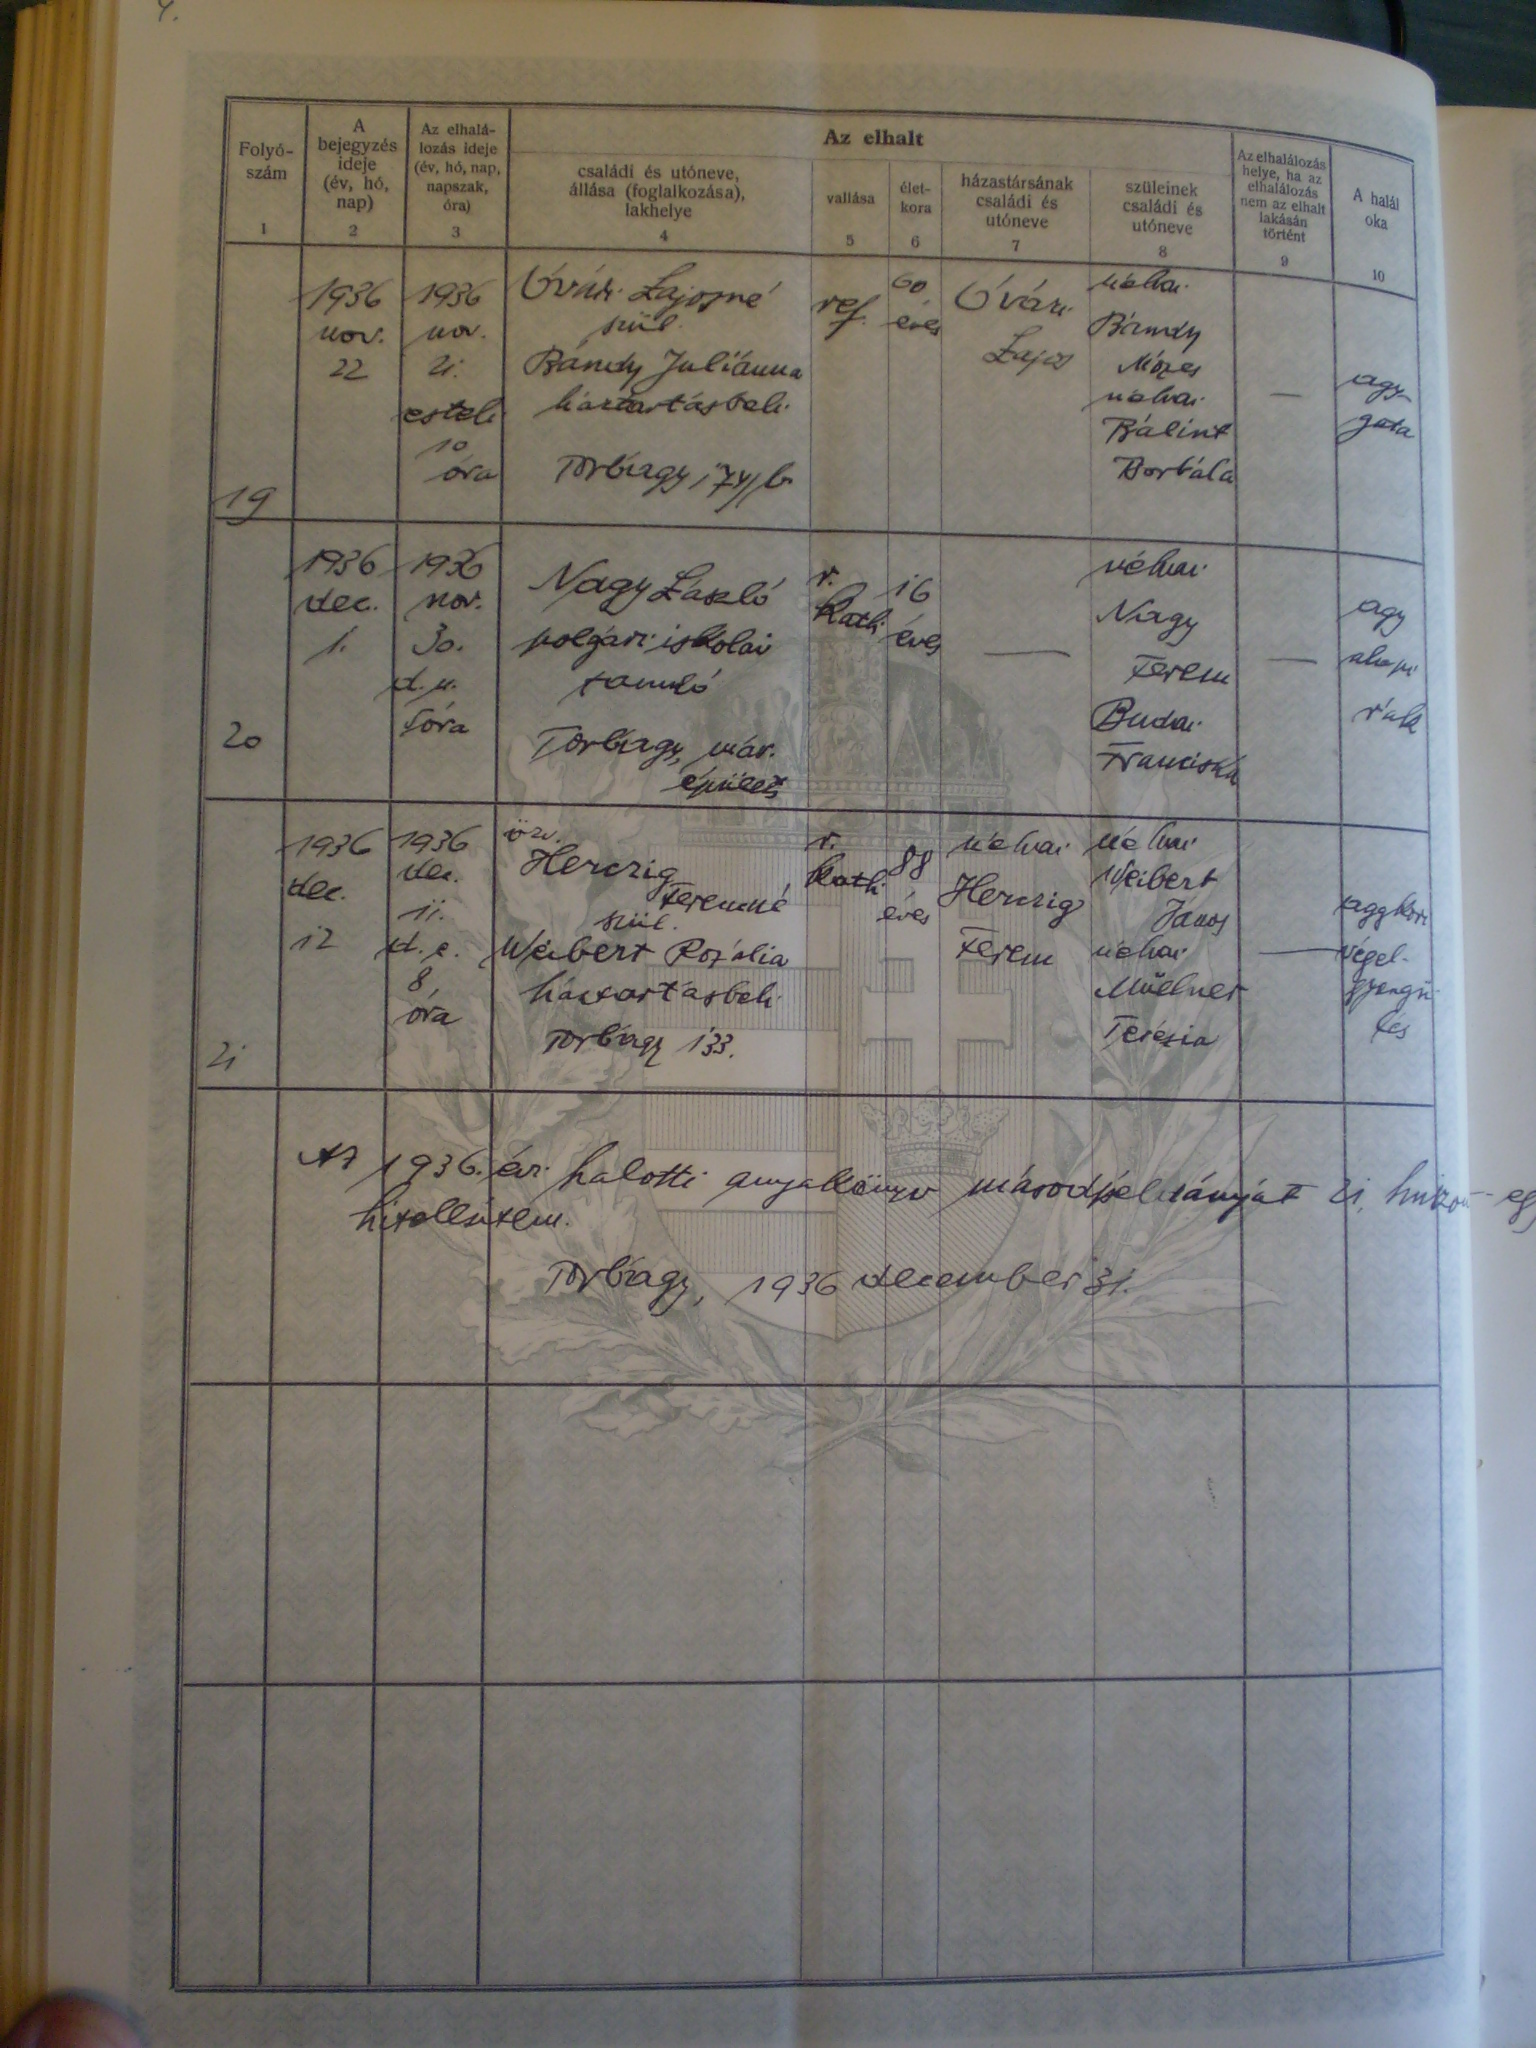 4.
Folyó-
szám
1
A
bejegyzés
ideje
(év, hó,
nap)
2
Az elhalá-
lozás ideje
(év, hó, nap,
napszak,
óra)
3
Az elhalt
családi és utóneve,
állása (foglalkozása),
lakhelye
4
vallása
5
élet-
kora
6
házastársának
családi és
utóneve
7
szüleinek
családi és
utóneve
8
Az elhalálozás
helye, ha az
elhalálozás
nem az elhalt
lakásán
történt
9
A halál
oka
10
19
1936
nov.
22
1936
nov.
21.
esteli
10
óra
Óvári Lajosné
szül.
Bándy Juliánna
háztartásbeli
Torbágy 174/b
ref.
60
éves
Óvári
Lajos
néhai
Bándy
Mózes
néhai
Bálint
Borbála
—
agy-
guta
20
1936
dec.
1.
1936
nov.
30.
d.u.
óra
Nagy László
polgári iskolai
tanuló
Torbágy, vár.
épület
r.
kath.
16
éves
—
néhai
Nagy
Ferenc
Budai
Franciska
—
agy
alapi
rák
21
1936
dec.
12
1936
dec.
11.
d.e.
8,
óra
özv.
Herczig
Ferencné
szül.
Weibert Rozália
háztartásbeli
Torbágy 133.
r.
kath.
88
éves
néhai
Herczig
Ferenc
néhai
Weibert
János
néhai
Müellner
Terézia
—
aggkori
végel-
gyengü-
lés
Az 1936. évi halotti anyakönyv másodpéldányját 21, huszon-egy
hitelesítem.
Torbágy, 1936 december 31.